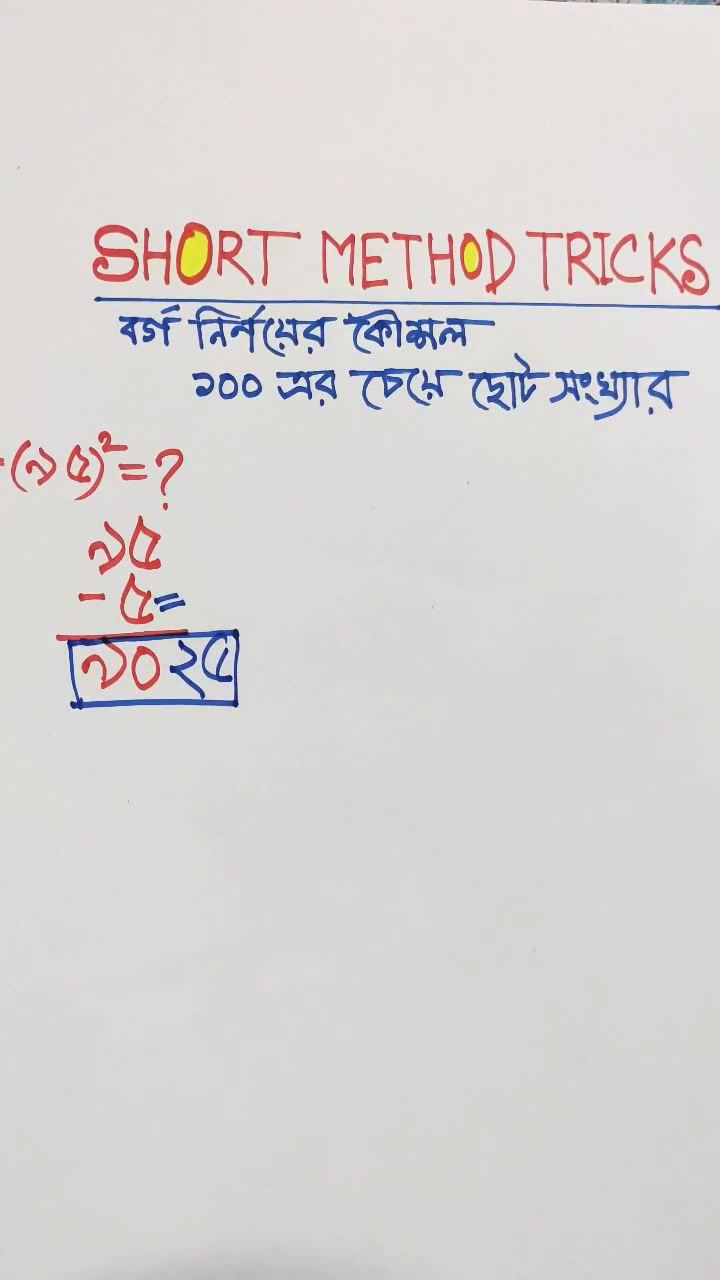 SHORT METHOD TRICKS
বর্গ নির্ণয়ের কৌশল
১০০ এর চেয়ে ছোট সংখ্যার
(৯৫)²=?
৯৫
- ৫=
৯০২৫